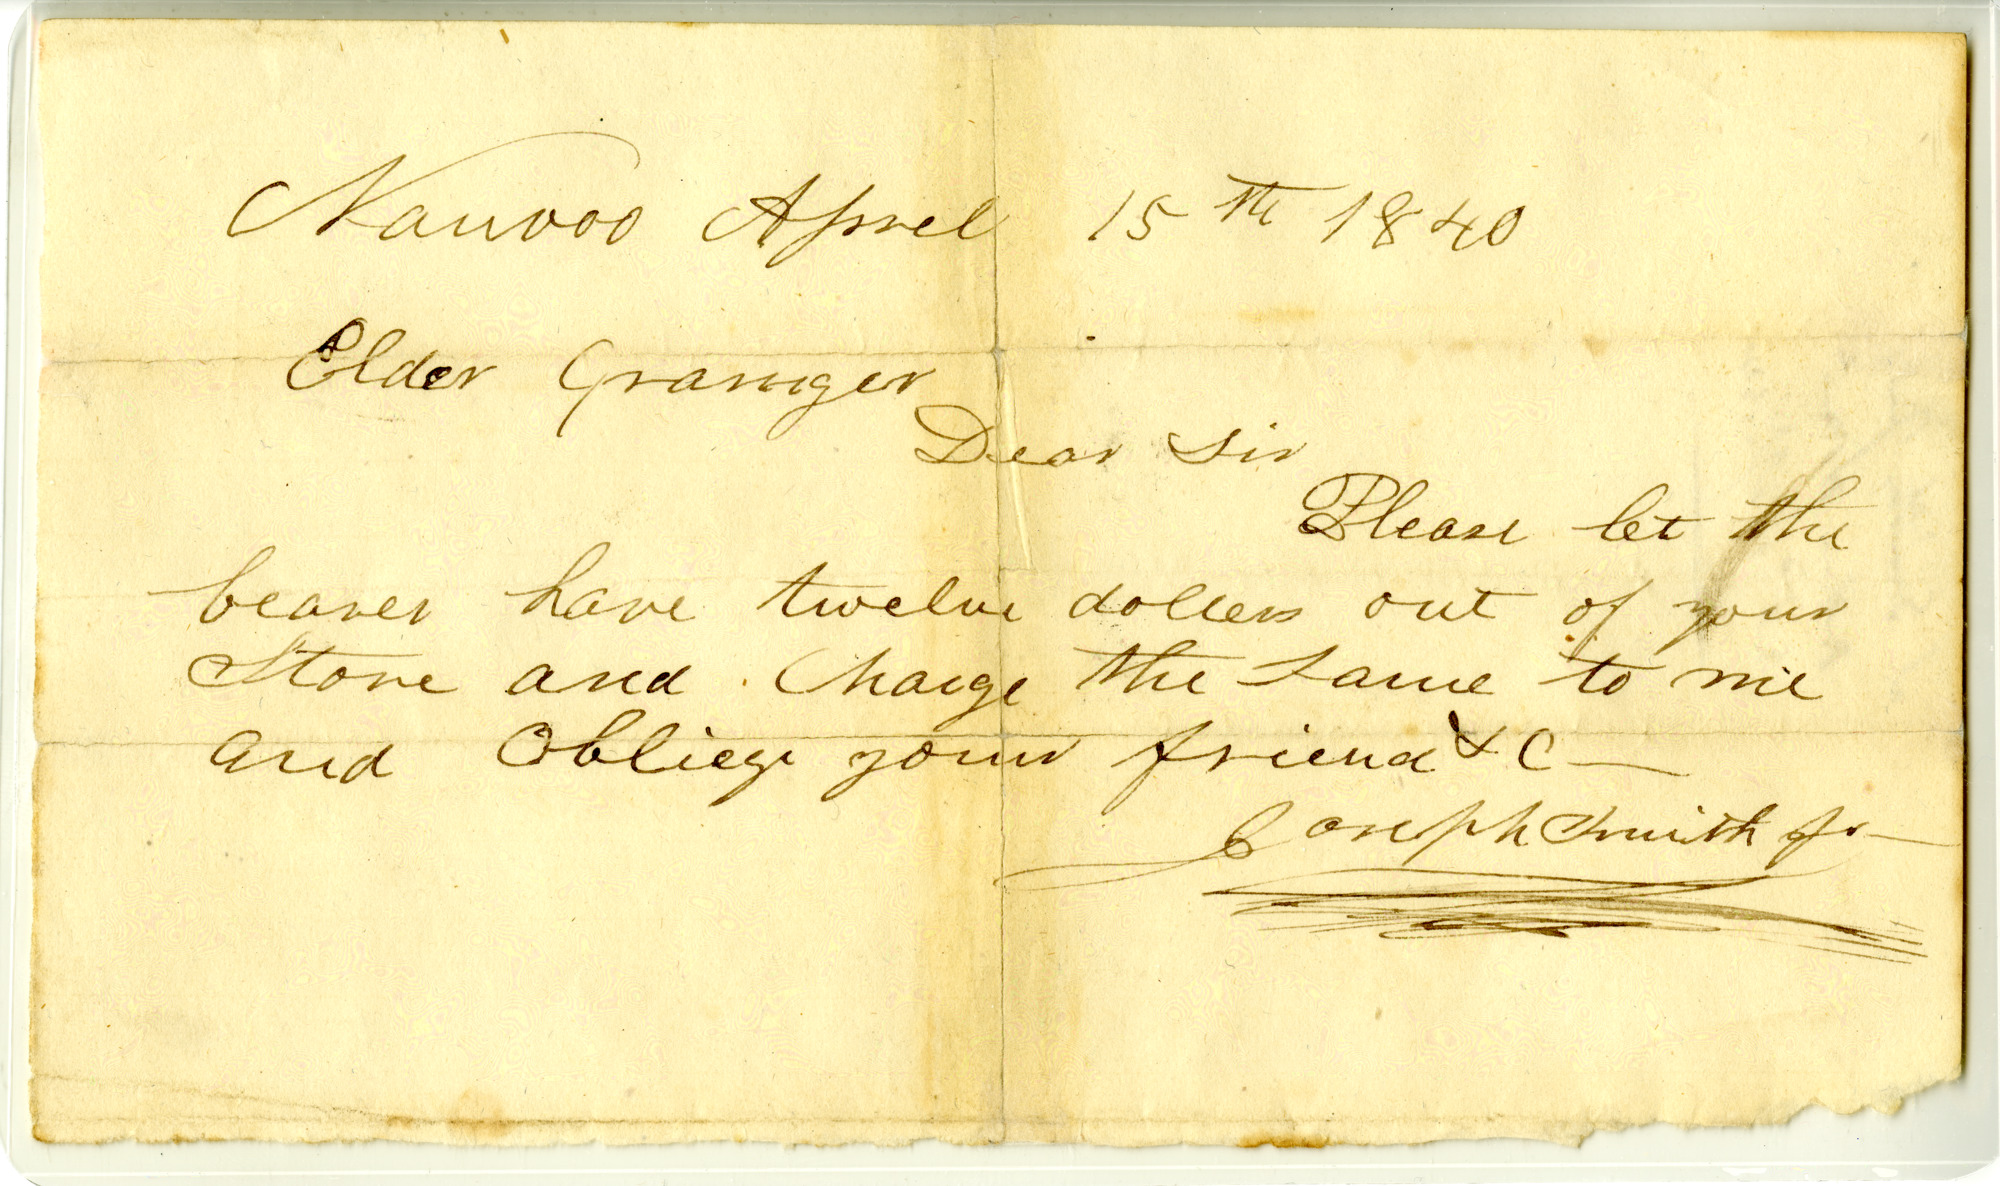 Nauvoo Aprel 15th 1840
Elder Granger
Dear Sir
Please let the
bearer have twelve dollers out of your
Store and Charge the Same to me
and Obliege your friend & C—
Joseph Smith Jr—